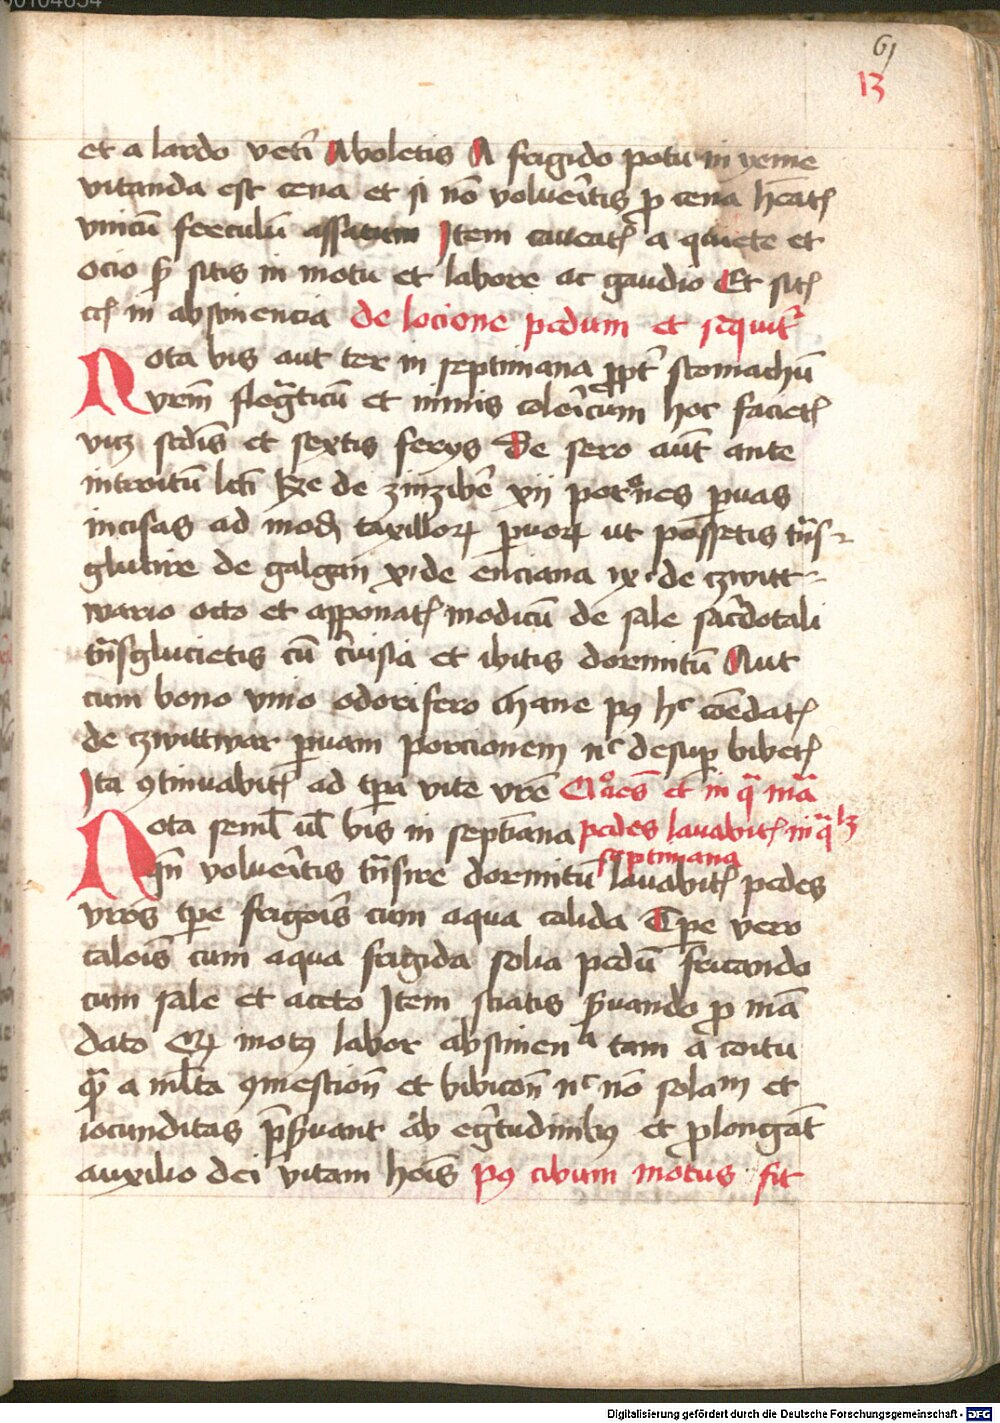 61
13
et a lardo vetĩ Aboletis A frigido potu in yeme
vitanda est cena et si nō volueritis ꝑ cena heatꝭ
vnicū ferculū assatum Item caueatꝭ a quiete et
ocio sꝫ sitis in motu et labore ac gaudio Et sitꝭ
in abstinencia de locione pedum et seq̄uitᷣ
Nota bis aut ter in septimana ꝓpt̄ stomachū
vrm̄ flegᷓticū et nimis colericum hoc facietꝭ
vitꝫ scd̄is et sextis ferijs De sero aūt ante
introitū lcti de zinziber xij porc̊nes ꝑuas
incisas ad modū taxilloꝝ ꝑuoꝝ ut possetis tn̄s-
glutire de galgan x de enciana ix de czwitt-
wario octo et apponatꝭ modicū de sale sacerdotali
tn̄sglucietis cū cr̄uisia et ibitis dormitū Aut
cum bono vino odorifero mane pꝰ hᶜ comedatꝭ
de czwittwar ꝑuam porcionem nᶜ desuꝑ bibetꝭ
Ita ꝯtinuabitꝭ ad tꝑa vite vr̄e et in qᷓ mᷓa
Nota seml̄ ul̄ bis in septīana pedes lauabitꝭ in qᷓlꝫ
septimana
qn̄ volueritis tn̄sire dormitū lauabitꝭ pedes
vros tꝑe frigoris cum aqua calida Tꝑe vero
calois cum aqua frigida solia pedū fricando
cum sale et aceto Item sciatis ẜuando ꝓ mā
dato qꝫ motꝰ labor abstinenᵃ tam a coitu
qᷓ a ml̄ta ꝯmestion̄ et bibicon̄ nᶜ nō solam et
iocunditas p̄ẜuant ab egᷣtudinibꝰ et ꝓlongāt
auxilio dei vitam hoīs pꝰ cibum motus fit
Digitalisierung gefördert durch die Deutsche Forschungsgemeinschaft - DFG